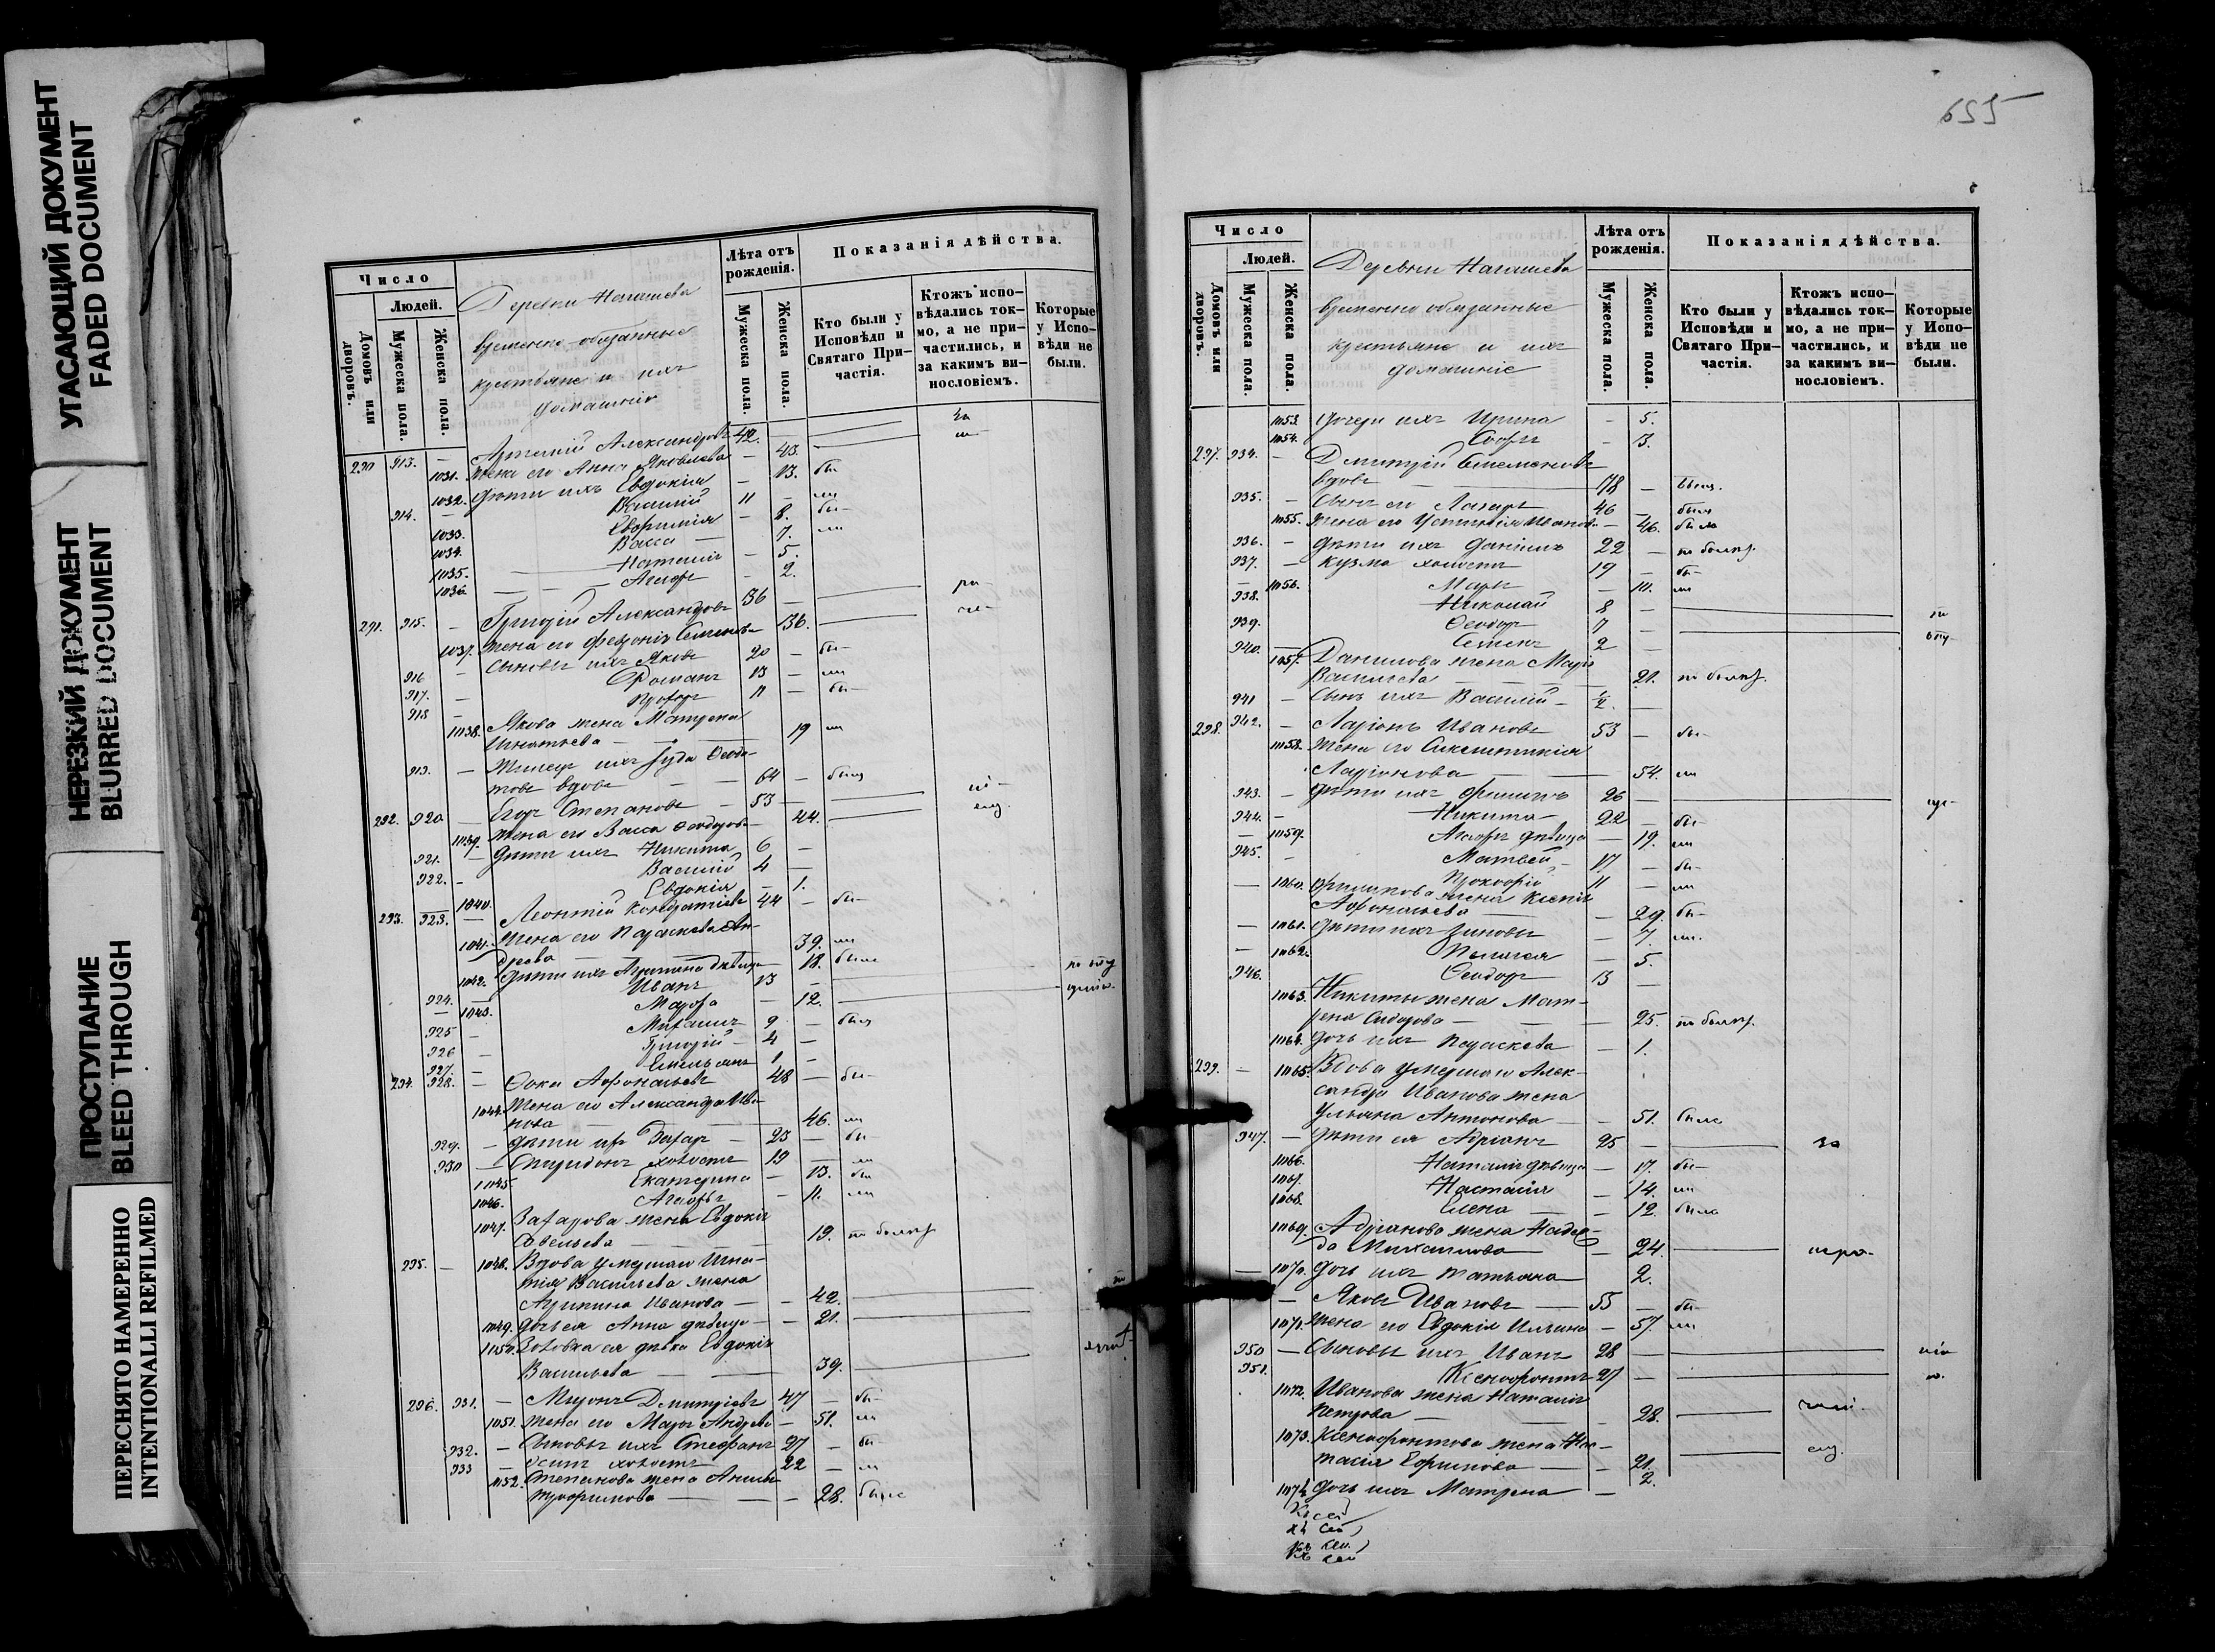 УГАСАЮЩИЙ ДОКУМЕНТ
FADED DOCUMENT
НЕРЕЗКИЙ ДОКУМЕНТ
BLURRED DOCUMENT
ПРОСТУПАНИЕ
BLEED THROUGH
ПЕРЕСНЯТО НАМЕРЕННО
INTENTIONALLI REFILMED
Число
Людей.
Домовъ или дворовъ.
Мужеска пола.
Женска пола.
Деревни
временно-обязанные
крестьяне и ихъ
домашніе
Лѣта отъ рожденія.
Мужеска пола.
Женска пола.
Показанія дѣйства.
Кто были у Исповѣди и Святаго Причастія.
Ктожъ испо-
вѣдались ток-
мо, а не при-
частились, и
за какимъ ви-
нословіемъ.
Которые
у Испо-
вѣди не
были.
290 913. — Артемій Александровъ 42.
1031. Жена его Анна Яковлева — 43.
1032. Дѣти ихъ Евдокія — 13. бы-
914. — Василій 11 — ли
1033. Евфимія — 8. бы-
1034. Васса — 7. ли
1035. Наталія — 5.
1036. Агафья — 2.
291. 915. — Григорій Александровъ 36 —
1037. Жена его Семенова 36.
916 — Сыновья ихъ Яковъ 20 — бы-
917. — Романъ 13 — ли
918 — 11 — бы-
1038. Якова жена Матрена
Игнатьева — 19 ли
919. — Іуда Ѳедо-
товъ вдовъ — 64 — былъ
292. 920 — Егоръ Степановъ — 53 —
1039. Жена его Васса Ѳедорова 44.
921. — Дѣти ихъ Никита 6 —
922. — Василій 4 —
1040. Евдокія — 1.
293. 923. — Леонтій Кондратіевъ 44 — бы-
1041. Жена его Параскева Ан-
дреева — 39. ли
1042. Дѣти ихъ Агрипина дѣвица 18. была
924. — Иванъ 13 —
1043. Марфа — 12.
925 — 9 — былъ
926 — Григорій — 4 —
927. — Емельянъ 1 —
294. 928. — Ѳока Афонасьевъ 48 — бы-
1044. Жена его Александра Ива-
нова — 46. ли
929. — Дѣти ихъ Захаръ — 23 — бы-
930 — Спиридонъ холостъ 19 — ли
1045. Екатерина — 13. бы
1046. Агафья — 11. ли
1047. Захарова жена Евдокія
Савельева — 19.
295. — 1048. Вдова умершаго Игна-
тія Васильева жена
Агрипина Иванова — 42.
1049. Дочь ея Анна дѣвица — 21.
1050. Золовка ея дѣвка Евдокія
Васильева — 39.
296. 931. — Миронъ Дмитріевъ 47 — бы-
1051. Жена его Марья Андреева — 51. ли
932. — Сыновья ихъ Стефанъ 27 — бы
933 — Осипъ холостъ 22 — ли
1052. Степанова жена
Трофимова — 28. была
655
Число
Людей.
Домовъ или дворовъ.
Мужеска пола.
Женска пола.
Деревни
временно обязанные
крестьяне и ихъ
домашніе
Лѣта отъ рожденія.
Мужеска пола.
Женска пола.
Показанія дѣйства.
Кто были у Исповѣди и Святаго Причастія.
Ктожъ испо-
вѣдались ток-
мо, а не при-
частились, и
за какимъ ви-
нословіемъ.
Которые
у Испо-
вѣди не
были.
1053. Дочери ихъ Ирина — 5.
1054. Софья — 3.
297. 934. — Дмитрій
вдовъ — 78 — былъ.
935. — Сынъ его Лазарь 46 — были
1055. Жена его Устинія Иванова — 46. была
936. — Дѣти ихъ Даніилъ 22 —
937. — Кузма холостъ 19 — бы-
— 1056. Марья — 11. ли
938. Николай 8 —
939. Ѳеодоръ 7 —
940. Семенъ 2 —
1057. Данилова жена Марья
Васильева — 21.
941 — Сынъ ихъ Василій — ½ —
298. 942. — Ларіонъ Ивановъ 53 — бы-
1058. Жена его Синклитикія
Ларіонова — 54. ли
943. — Дѣти ихъ Филипъ 26 —
944. — Никита — 22 — бы-
1059. Агафья дѣвица — 19. ли
945. — Матвей — 17 — бы-
Прокофій 11 — ли
1060. Филипова жена Ксенія
Афонасьева — 29. бы-
1061. Дѣти ихъ Зиновья — 7. ли.
1062. Пелагея — 5.
946. Ѳеодоръ 3 —
1063. Никиты жена Мат-
рена Сидорова — 25.
1064. Дочь ихъ Параскева — 1.
299. — 1065. Вдова умершаго Алек-
сандра Иванова жена
Ульяна Антонова — 51. была
947. — Дѣти ея Адріанъ 25 —
1066. Наталія дѣвица — 17. бы-
1067. Настасія — 14. ли
1068. Елена — 12. была
1069. Адріанова жена Надеж-
да Михаилова — 24.
1070. Дочь ихъ Татьяна 2.
— Яковъ Ивановъ — 55 — бы-
1071. Жена его Евдокія Ильина — 57. ли
950 — Сыновья ихъ Иванъ 28 —
951. Ксенофонтъ 27 —
1072. Иванова жена Наталія
Петрова — 28.
1073. Ксенофонтова жена Нас-
тасія Ефимова — 21.
1074. Дочь ихъ Матрена — 2.